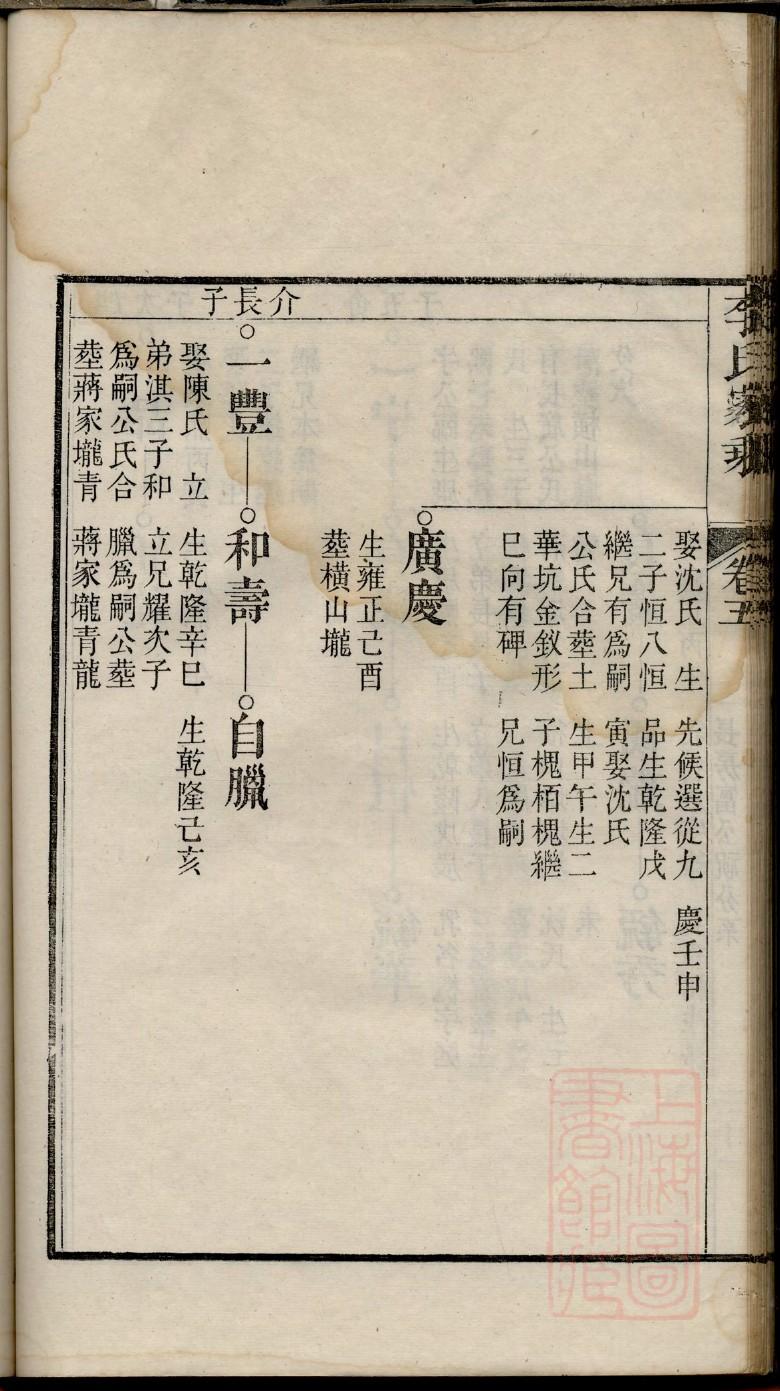 李氏家乘
卷五
娶沈氏　生
二子恒八恒
繼兄有爲嗣
公氏合塟土
華坑金釵形
巳向有碑
先候選從九
品生乾隆戊
寅娶沈氏
生甲午生二
子槐栢槐繼
兄恒爲嗣
慶壬申
廣慶
生雍正己酉
塟橫山壠
介長子
一豐
娶陳氏　立
弟淇三子和
爲嗣公氏合
塟蔣家壠青
和壽
生乾隆辛巳
立兄耀次子
臘爲嗣公塟
蔣家壠青龍
自臘
生乾隆己亥
上海圖書館藏